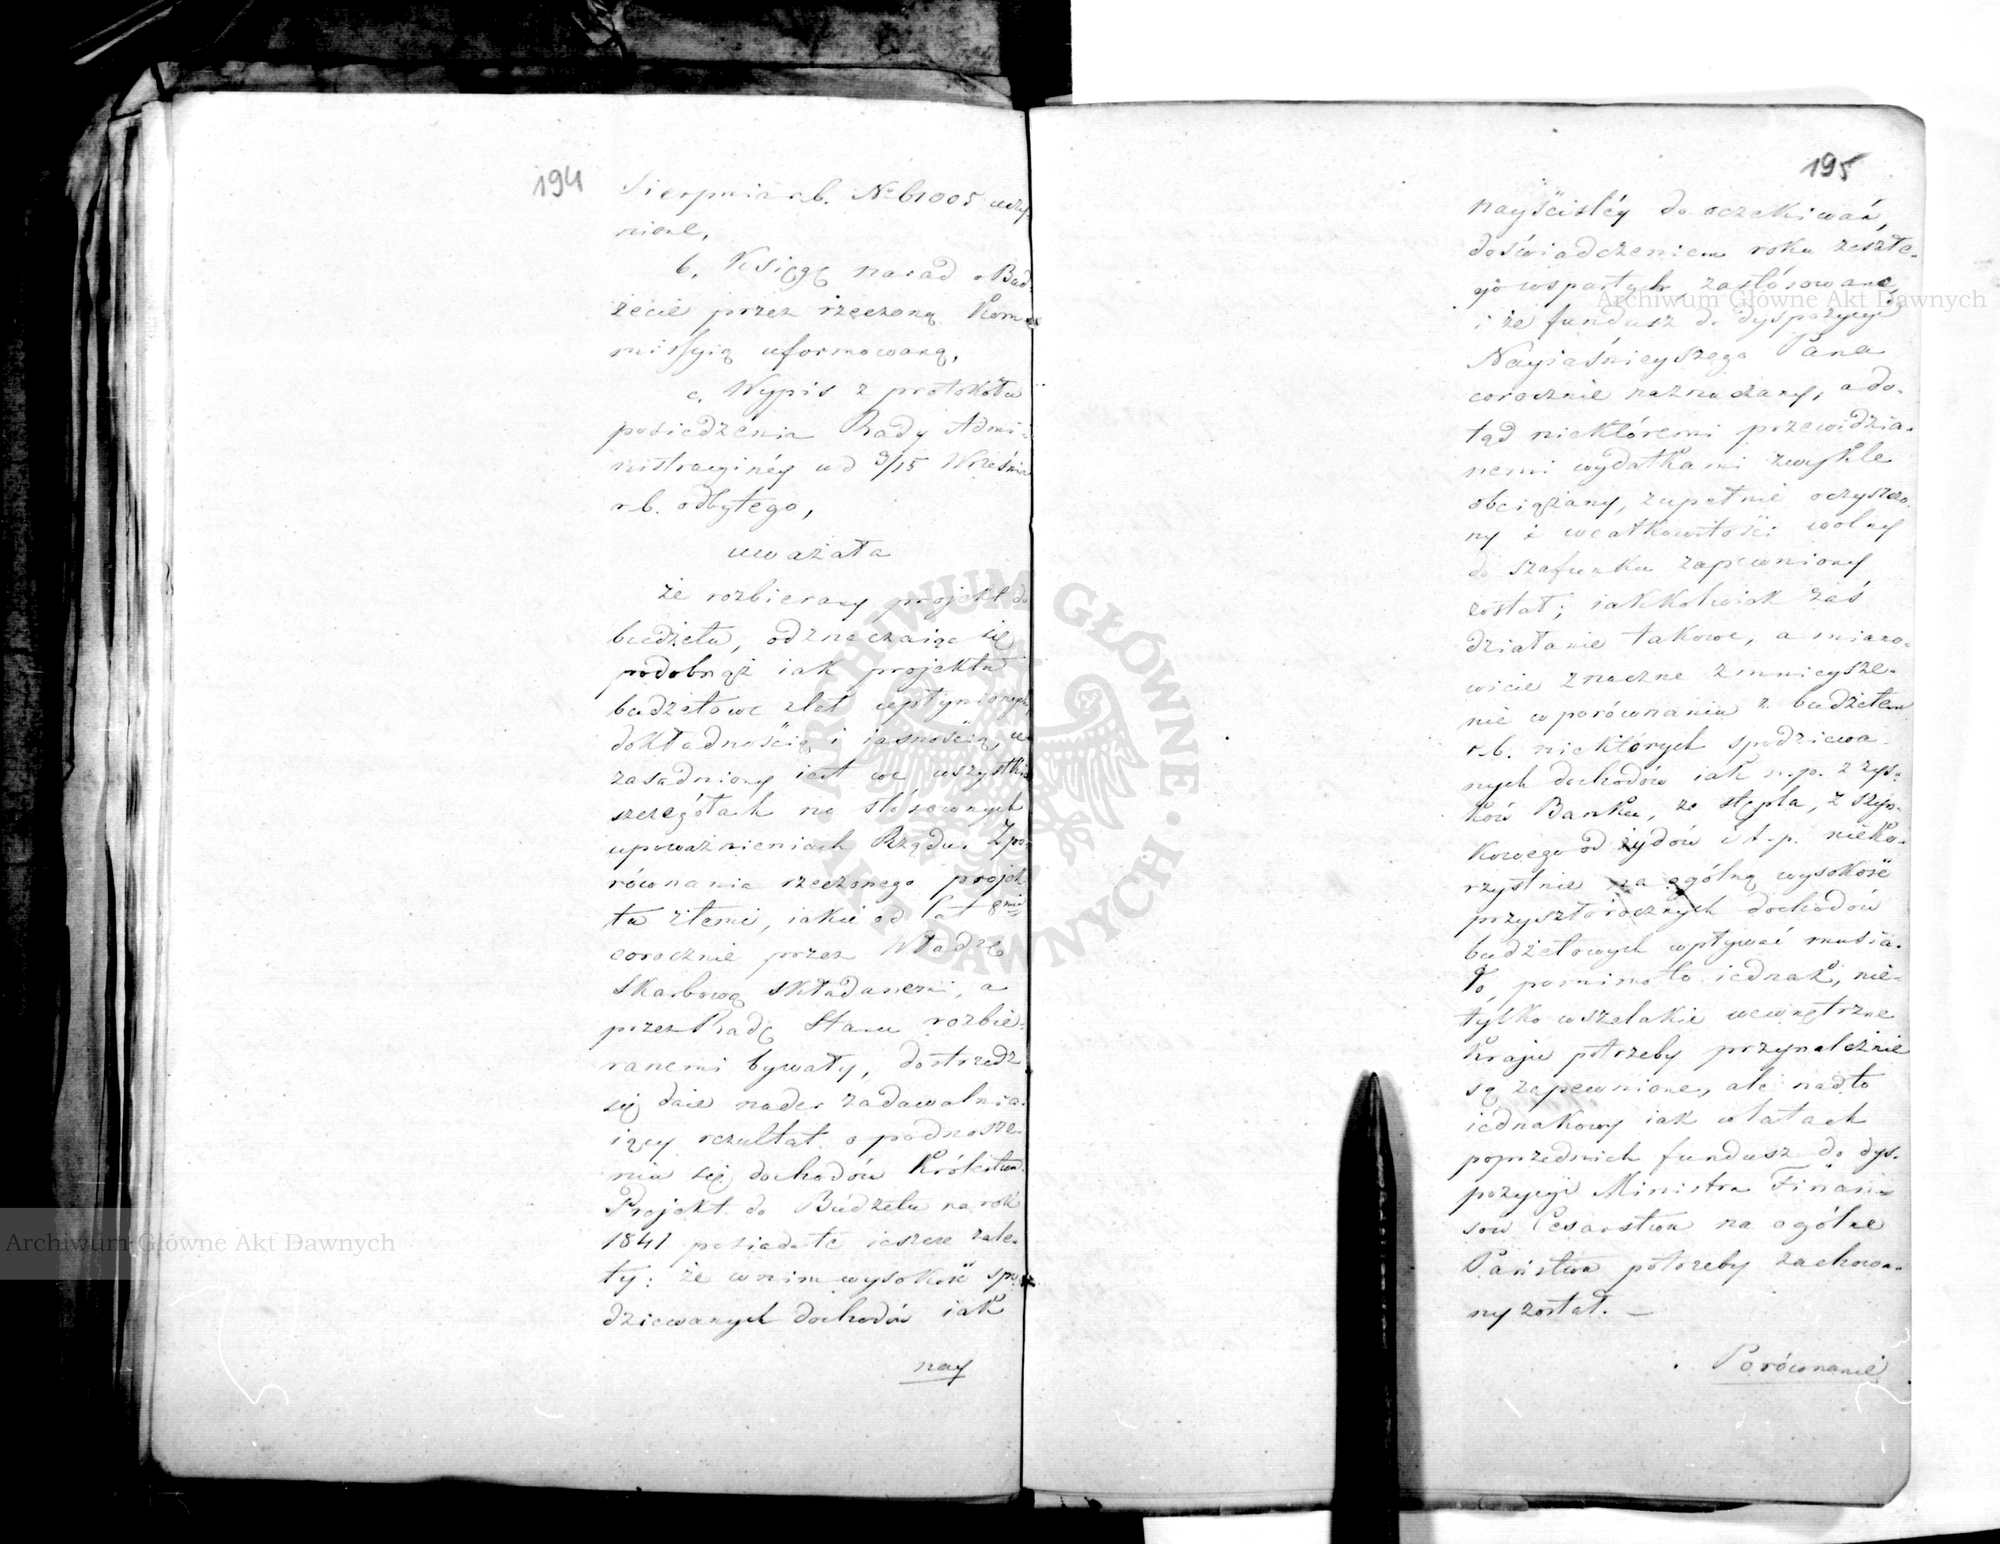 194
Sierpnia r.b. № 61005 uczy-
nione,
b, Księgę narad o Bud-
żecie przez rzeczoną Kom-
missyią uformowaną,
c, Wypis z protokółu
posiedzenia Rady Admi-
nistracyinéy w d 3/15 Września
r.b. odbytego,
uważała
że rozbierany projekt do
budżetu, odznaczaiąc się
podobnąż iak projekta
budżetowe z lat upłynionych,
dokładnością i iasnością, u-
zasadniony iest we wszystkich
szczegółach na stósownych
upoważnieniach Rządu. Z po-
równania rzeczonego projek-
tu z temi, iakie od lat 8miu
corocznie przez Władzę
Skarbową składanemi, a
przez Radę Stanu rozbie-
ranemi bywały, dostrzedz
się daie nader zadawalnia-
iący rezultat o podnosze-
niu się dochodów Królestwa.
Projekt do Budżetu na rok
1841 posiada tę ieszcze zale-
ty: że w nim wysokość spo-
dziewanych dochodów iak
nay
195
nayściśléy do oczekiwań,
doświadczeniem roku zeszłe-
go wspartych, zastósowano,
i że fundusz do dyspozycyi
Nayiaśnieyszego Pana
corocznie naznaczany, a do-
tąd niektóremi przewidzia-
nemi wydatkami zwykle
obciążany, zupełnie oczyszczo-
ny i w całkowitości wolny
do szafunku zapewniony
został; iakkolwiek zaś
działanie takowe, a miano-
wicie znaczne zmnieysze-
nie w porównaniu z budżetem
r.b. niektórych spodziewa-
nych dochodów iak n.p. z zys-
ków Banku, ze stępla, z szyn-
kowego od żydów i t.p. nieko-
rzystnie na ogólną wysokość
przyszłorocznych dochodów
budżetowych wpływać musia-
ło, pomimo to iednak, nie-
tylko wszelakie wewnętrzne
Kraju potrzeby przynależnie
są zapewnione, ale nadto
iednakowy iak w latach
poprzednich fundusz do dys-
pozycyi Ministra Finan-
sów Cesarstwa na ogólne
Państwa potrzeby zachowa-
ny został. —
Porównanie
Archiwum Główne Akt Dawnych
Archiwum Główne Akt Dawnych
ARCHIWUM GŁÓWNE • AKT DAWNYCH •